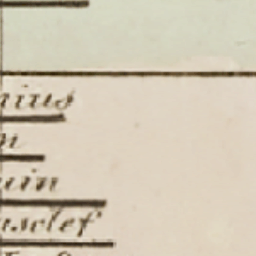 nius
n
uin
usclef